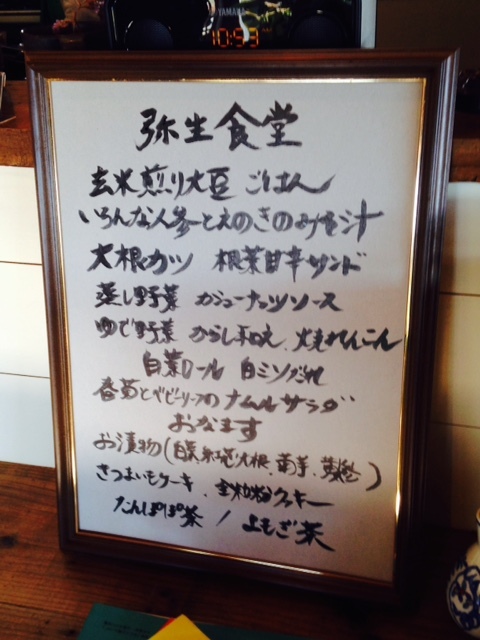 YAMAHA
10:53
弥生食堂
玄米煎り大豆 ごはん
いろんな人参とえのきのみそ汁
大根カツ 根菜甘辛サンド
蒸し野菜 カシューナッツソース
ゆで野菜 からし和え、焼れんこん
白菜ロール 白ミソだれ
春菊とベビーリーフのナムルサラダ
おなます
お漬物(白菜、紅芯大根、菊芋、
さつまいもケーキ、全粒粉クッキー
たんぽぽ茶 / よもぎ茶